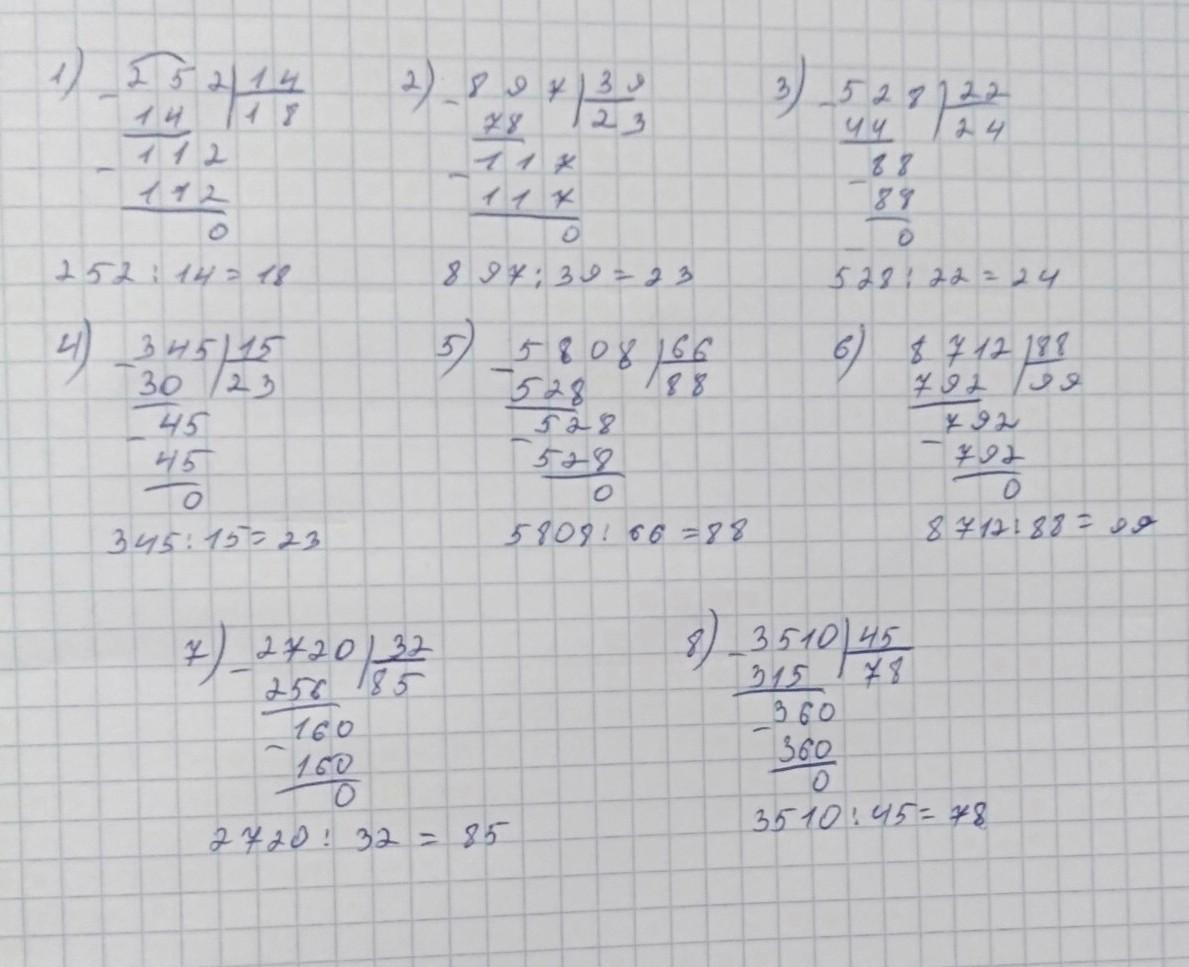 1) - 252 | 14
14 | 18
- 112
112
0
252 : 14 = 18
2) - 897 | 39
78 | 23
- 117
117
0
897 : 39 = 23
3) - 528 | 22
44 | 24
- 88
88
0
528 : 22 = 24
4) - 345 | 15
30 | 23
- 45
45
0
345 : 15 = 23
5) - 5808 | 66
528 | 88
- 528
528
0
5808 : 66 = 88
6) 8712 | 88
792 | 99
- 792
792
0
8712 : 88 = 99
7) - 2720 | 32
256 | 85
- 160
160
0
2720 : 32 = 85
8) - 3510 | 45
315 | 78
- 360
360
0
3510 : 45 = 78